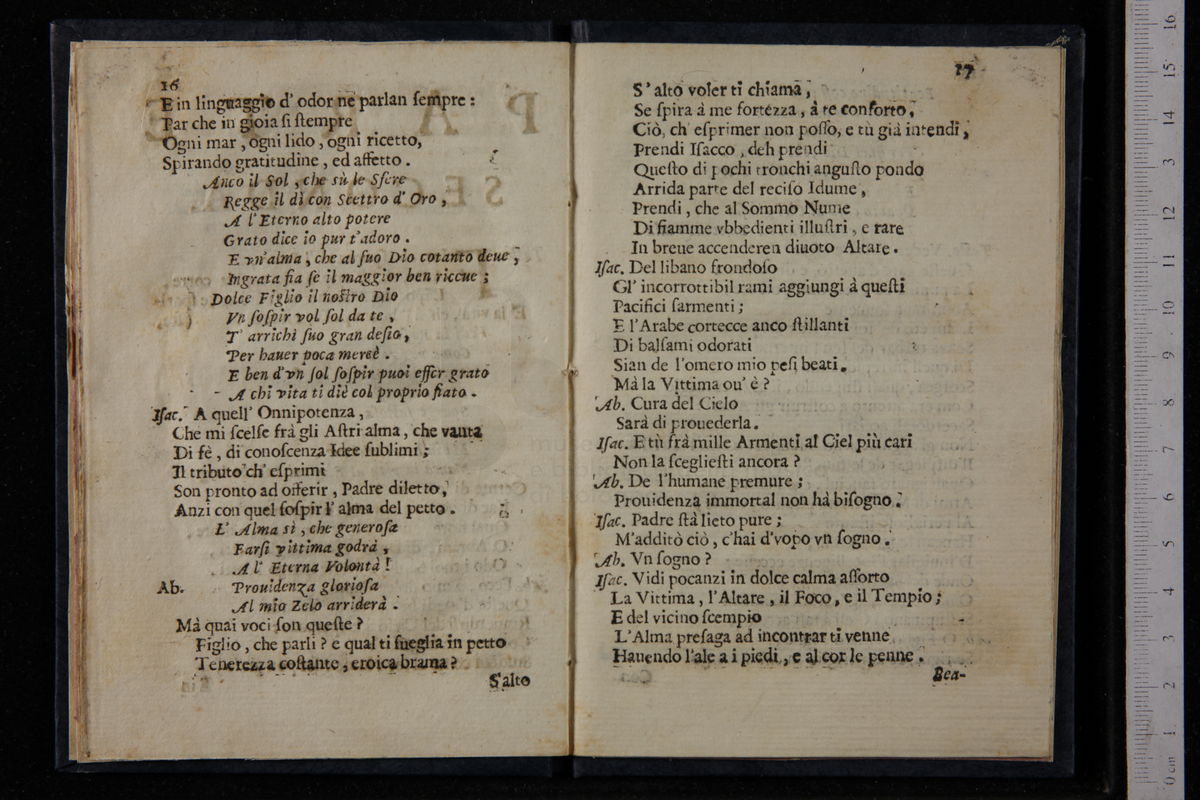 16
E in linguaggio d' odor ne parlan ſempre :
Par che in gioia ſi ſtempre
Ogni mar , ogni lido , ogni ricetto,
Spirando gratitudine , ed affetto .
Anco il Sol , che sù le Sfere
Regge il dì con Scettro d' Oro ,
A l' Eterno alto potere
Grato dice io pur t'adoro .
E vn'alma , che al ſuo Dio cotanto deue ,
Ingrata fia ſe il maggior ben riceue ;
Dolce Figlio il noſtro Dio
Vn ſoſpir vol ſol da te ,
T' arrichì ſuo gran deſio ,
Per hauer poca mercè .
E ben d'vn ſol ſoſpir puoi eſſer grato
A chi vita ti diè col proprio fiato .
Iſac. A quell' Onnipotenza ,
Che mi ſcelſe frà gli Aſtri alma , che vanta
Di fè , di conoſcenza Idee ſublimi ;
Il tributo ch' eſprimi
Son pronto ad offerir , Padre diletto,
Anzi con quel ſoſpir l' alma del petto .
L' Alma sì , che generoſa
Farſi vittima godrà ,
A l' Eterna Volontà !
Ab. Prouidenza glorioſa
Al mio Zelo arriderà .
Mà quai voci ſon queſte ?
Figlio , che parli ? e qual ti ſueglia in petto
Tenerezza coſtante , eroica brama ?
S'alto
17
S' alto voler ti chiama ,
Se ſpira à me fortezza , à te conforto ,
Ciò, ch' eſprimer non poſſo, e tù già intendi ,
Prendi Iſacco , deh prendi
Queſto di pochi tronchi anguſto pondo
Arrida parte del reciſo Idume ,
Prendi , che al Sommo Nume
Di fiamme vbbedienti illuſtri , e rare
In breue accenderen diuoto Altare .
Iſac. Del libano frondoſo
Gl' incorrottibil rami aggiungi à queſti
Pacifici ſarmenti ;
E l'Arabe cortecce anco ſtillanti
Di balſami odorati
Sian de l'omero mio peſi beati .
Mà la Vittima ou' è ?
Ab. Cura del Cielo
Sarà di prouederla .
Iſac. E tù frà mille Armenti al Ciel più cari
Non la ſceglieſti ancora ?
Ab. De l'humane premure ;
Prouidenza immortal non hà biſogno .
Iſac. Padre ſtà lieto pure ;
M'additò ciò , c'hai d'vopo vn ſogno .
Ab. Vn ſogno ?
Iſac. Vidi pocanzi in dolce calma aſſorto
La Vittima , l'Altare , il Foco , e il Tempio ;
E del vicino ſcempio
L'Alma preſaga ad incontrar ti venne
Hauendo l'ale a i piedi , e al cor le penne .
Bea-